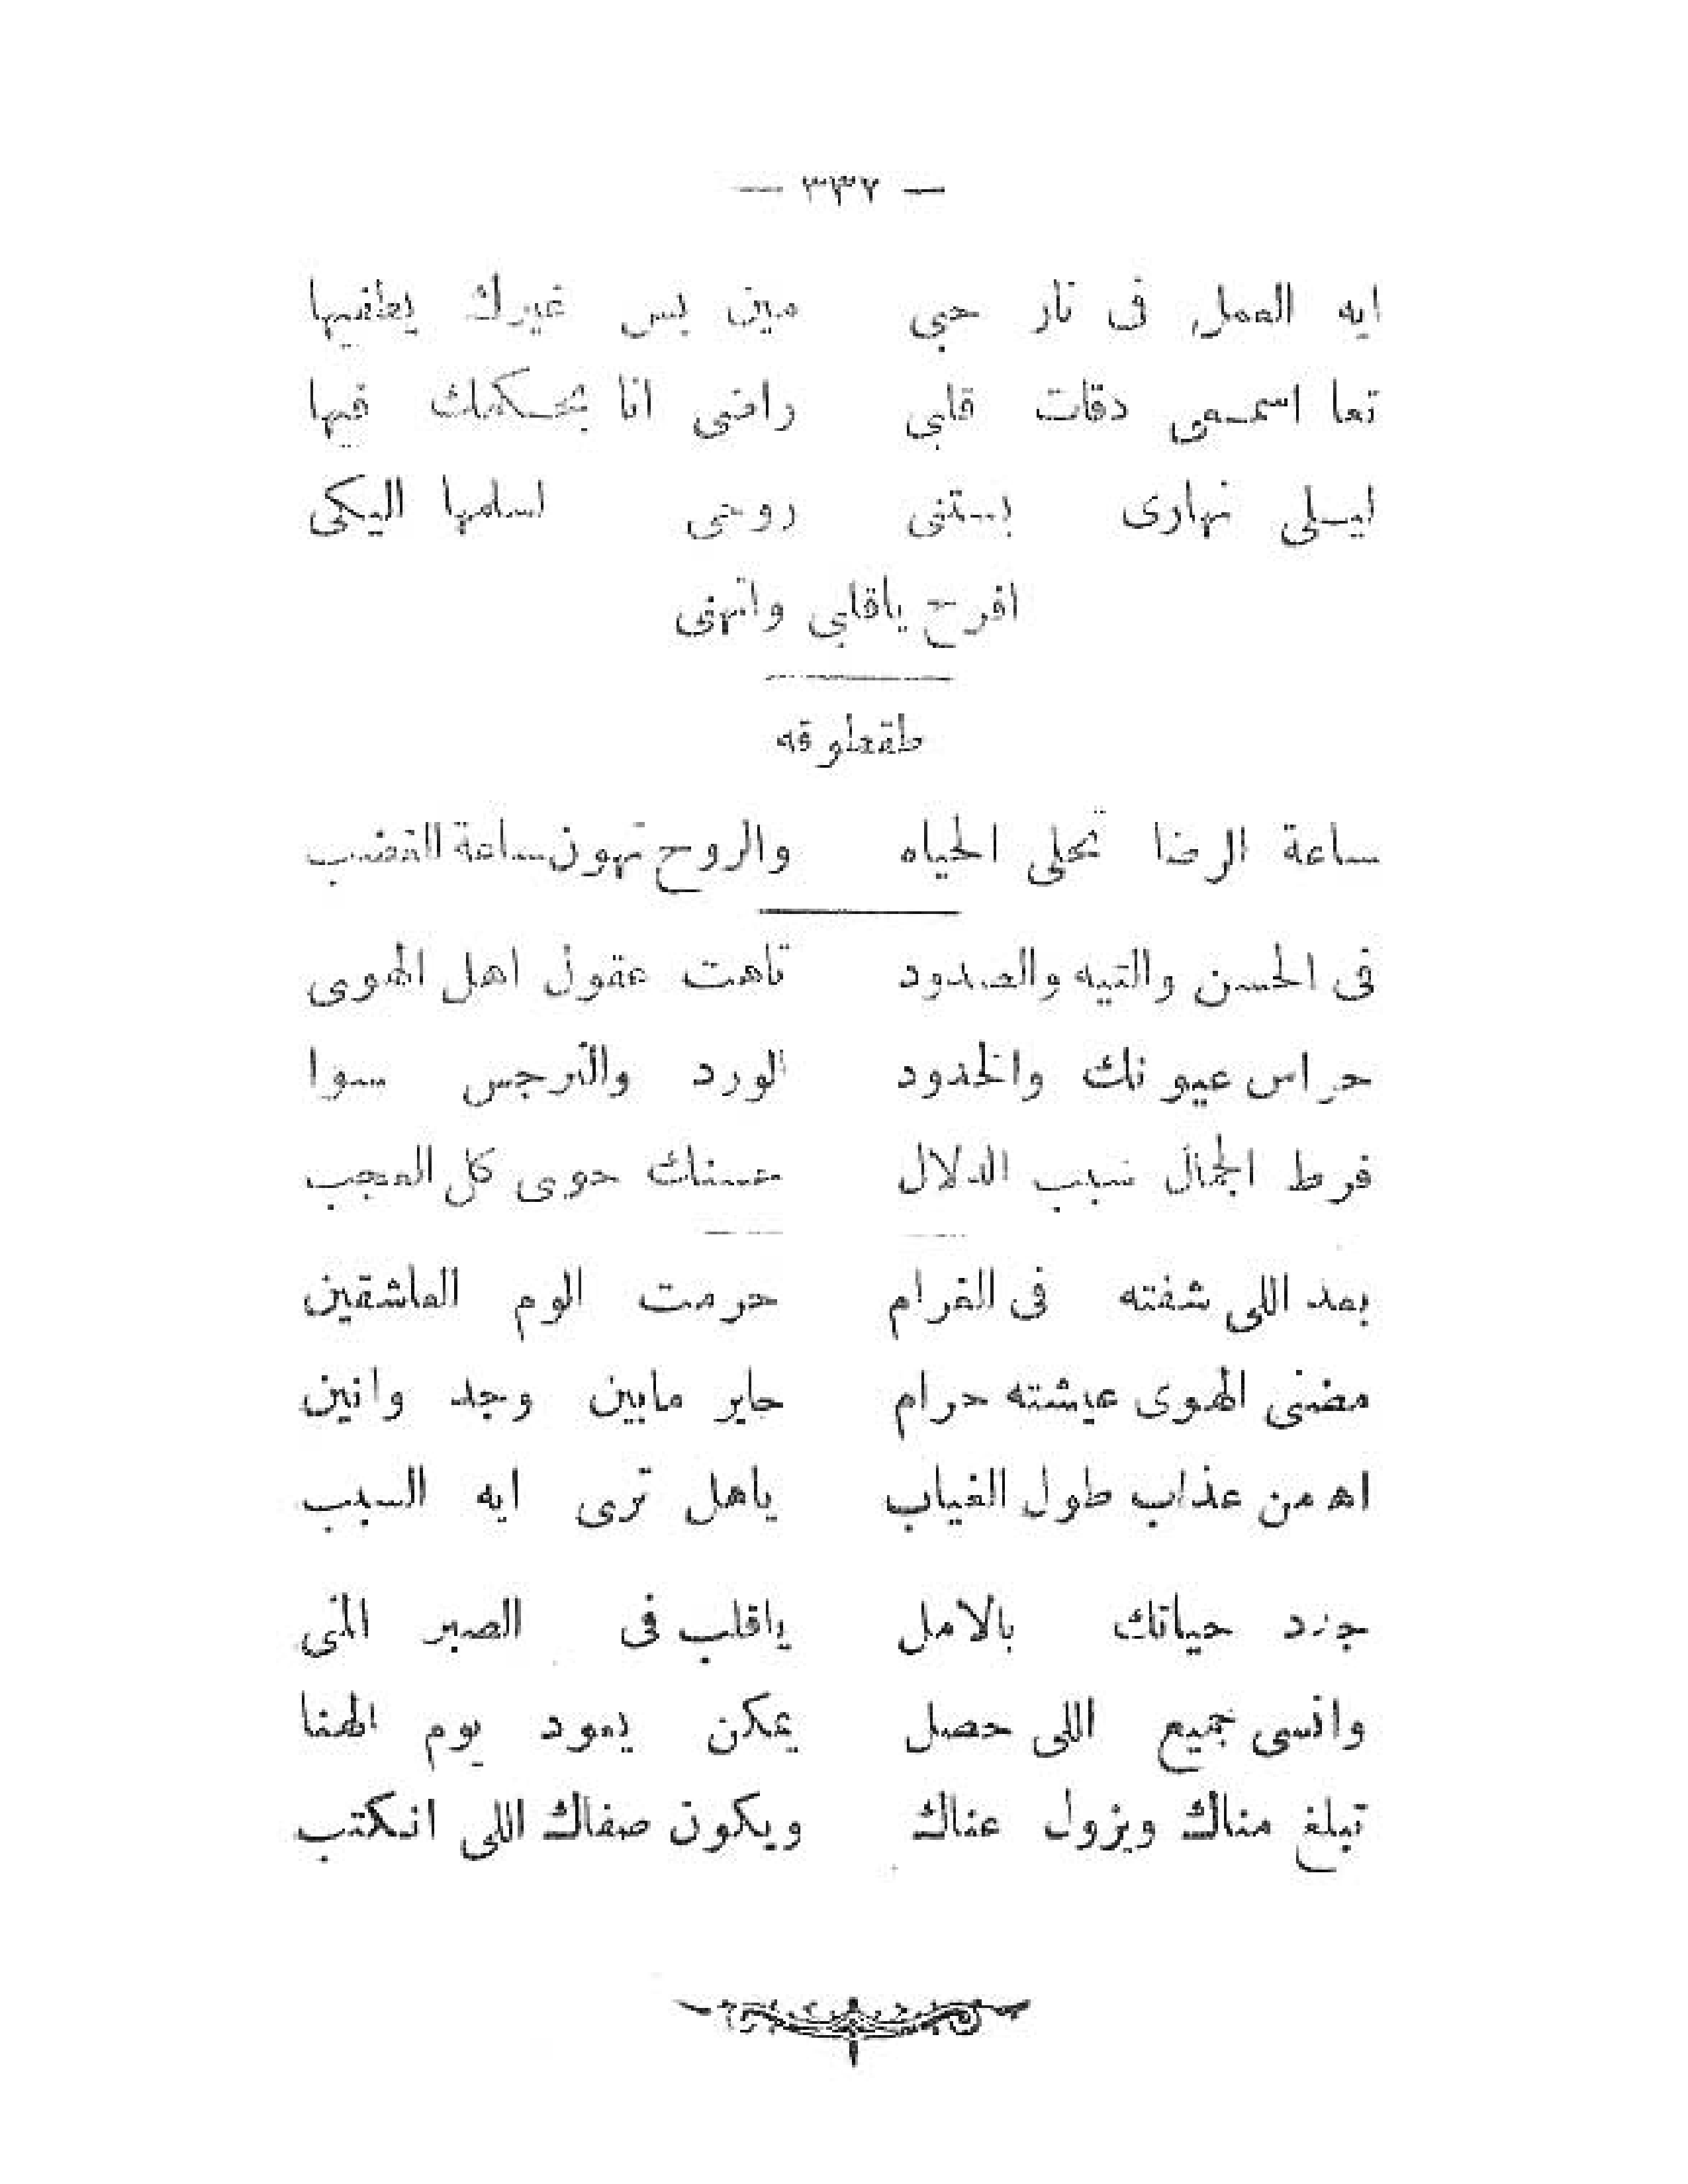 — ٣٣٧ —
ايه العمل فى نار حبي مين بس غيرك يطفيها
تعا اسمعى دقات قلبي راضى انا بحكمك فيها
ليلى نهارى بستنى روحى اسلمها اليكى
افرح ياقلبي واتهنى
طقطوقه
ساعة الرضا تحلى الحياه والروح تهون ساعة الغضب
فى الحسن والتيه والصدود تاهت عقول اهل الهوى
حراس عيونك والخدود الورد والنرجس سوا
فرط الجمال سبب الدلال حسنك حوى كل العجب
بعد اللى شفته فى الغرام حرمت الوم العاشقين
مضنى الهوى عيشته حرام حاير مابين وجد وانين
اه من عذاب طول الغياب ياهل ترى ايه السبب
جدد حياتك بالامل ياقلب فى الصبر المنى
وانسى جميع اللى حصل يمكن يعود يوم الهنا
تبلغ مناك ويزول عناك ويكون صفاك اللى انكتب